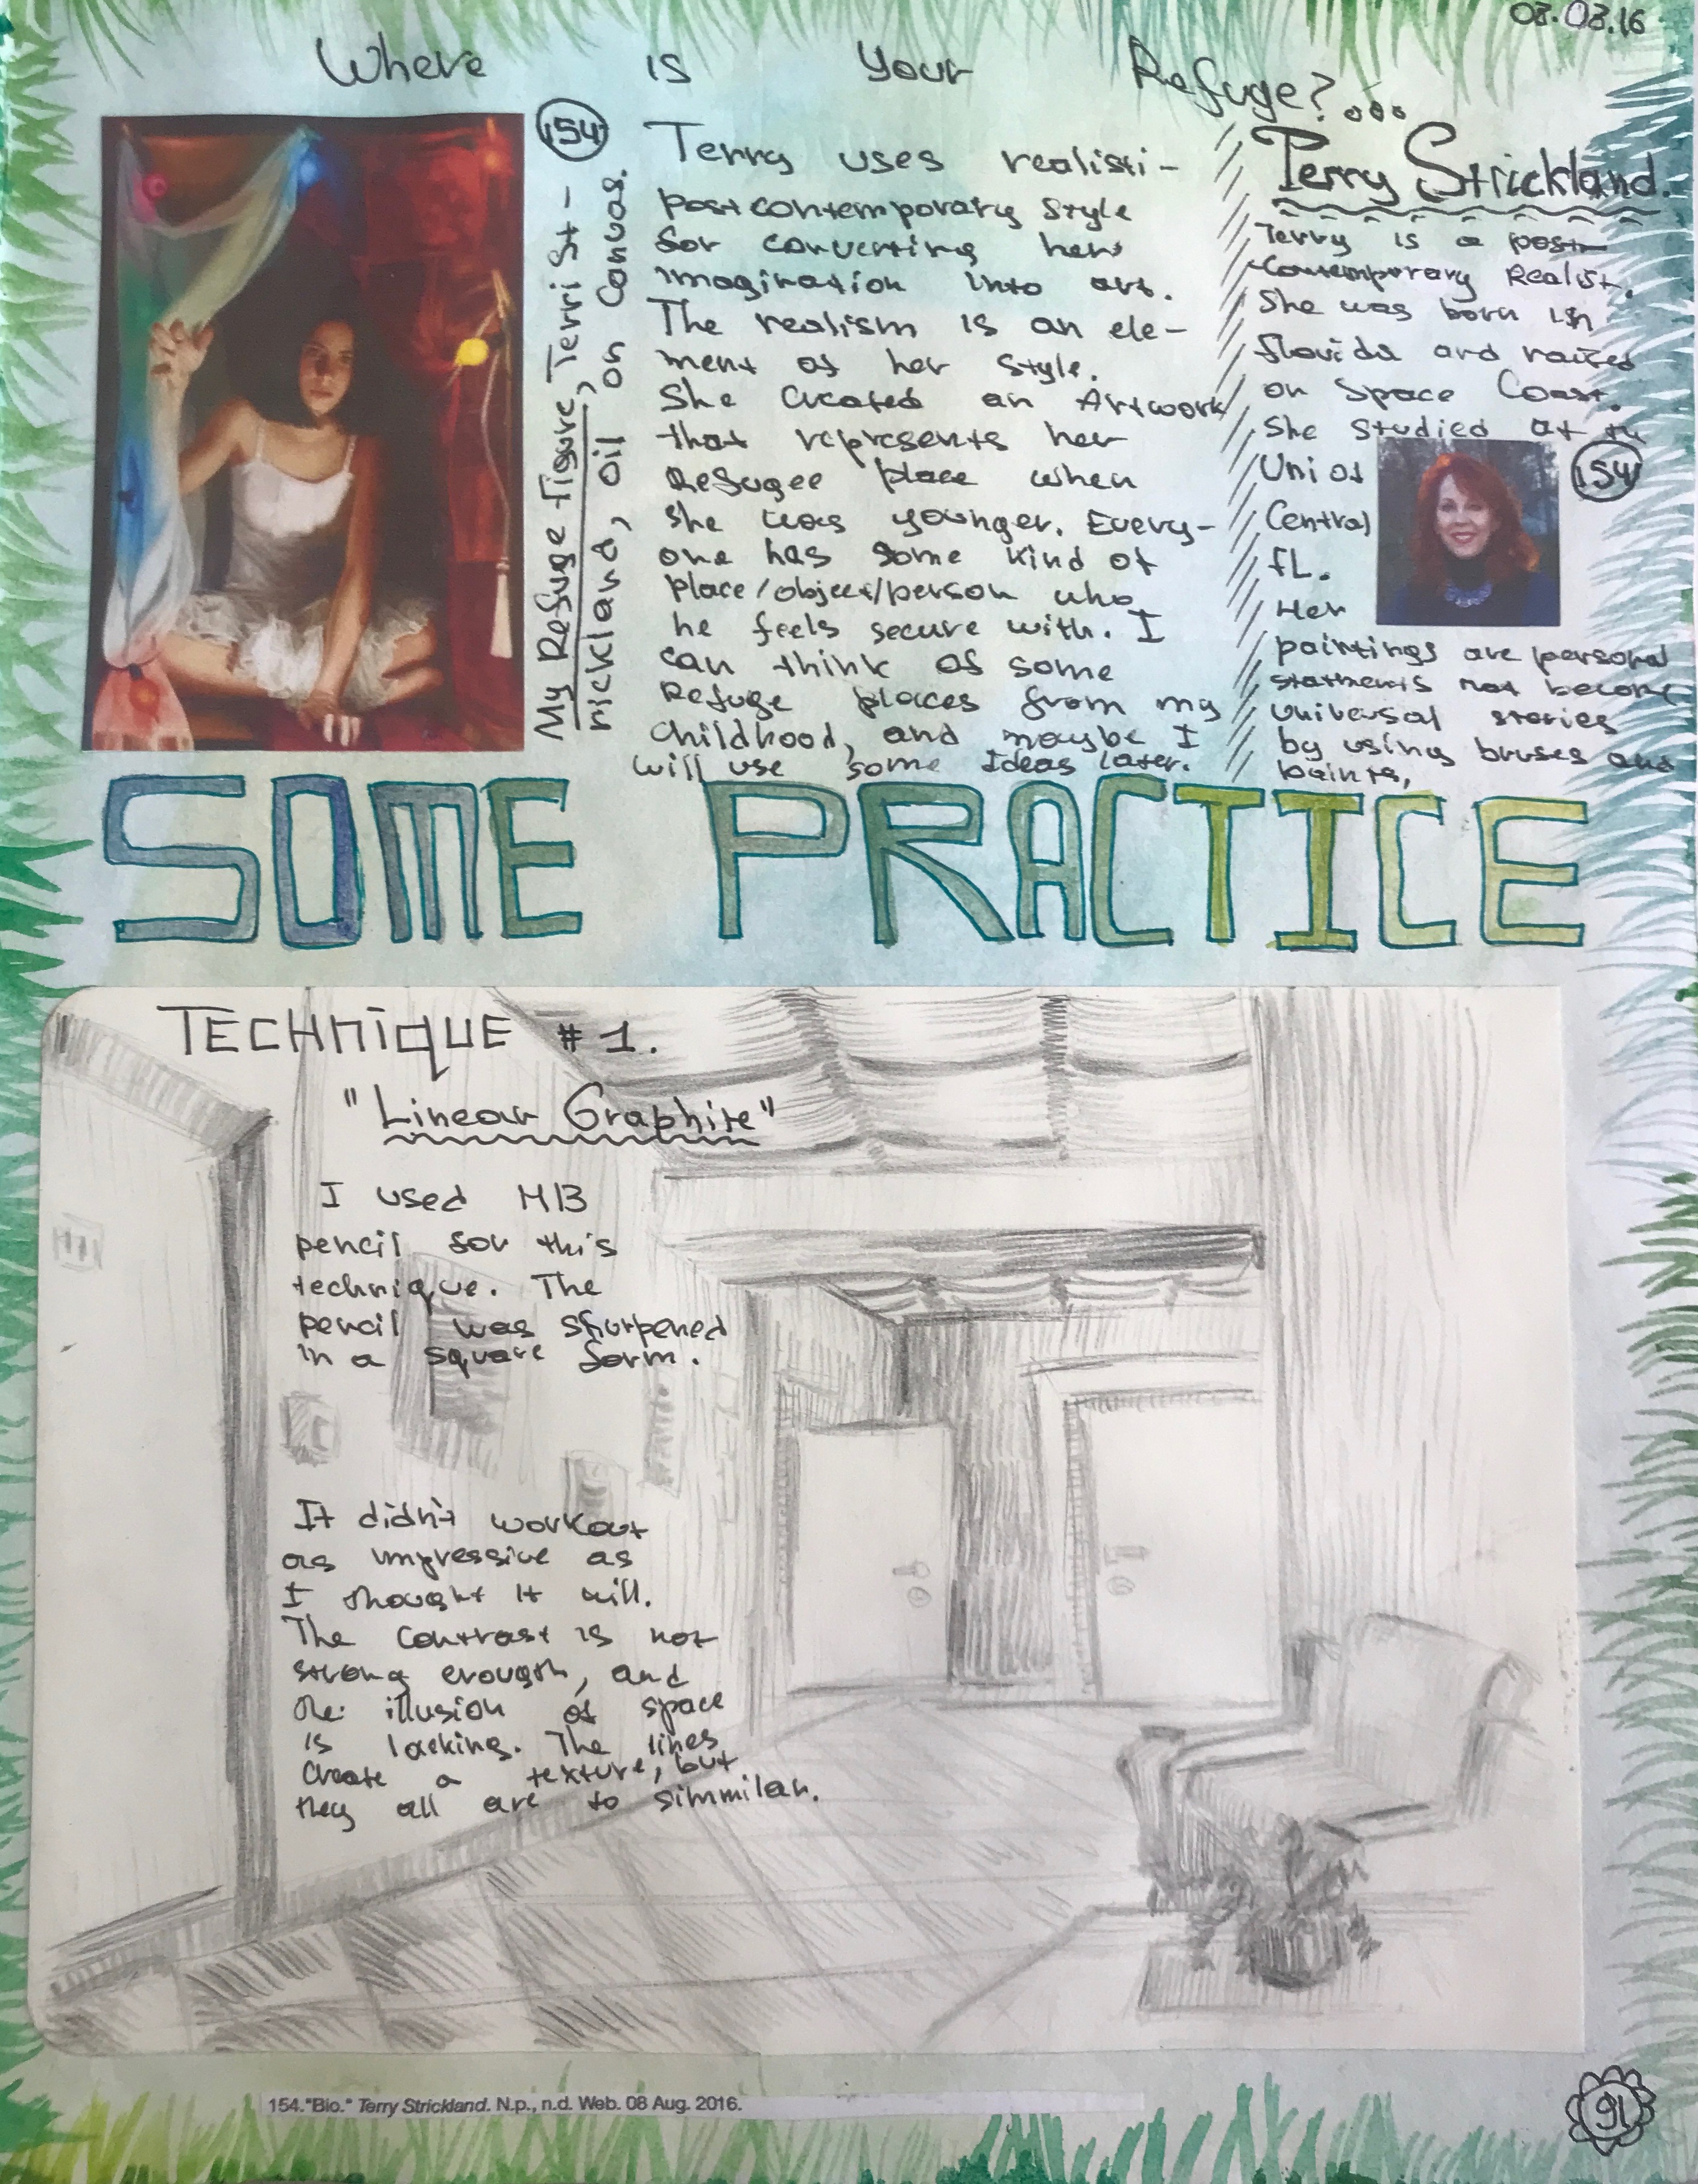 08.08.16
Where is Your Refuge?...
154
My Refuge Figure, Terri St-
rickland, oil on canvas.
Terry uses realisti-
postcontemporary style
for converting her
imagination into art.
The realism is an ele-
ment of her style.
She created an Artwork
that represents her
Refugee place when
she was younger. Every-
one has some kind of
place/object/person who
he feels secure with. I
can think of some
Refuge places from my
childhood, and maybe I
will use some Ideas later.
Terry Strickland.
Terry is a post-
Contemporary Realist.
She was born in
Florida and raised
on Space Coast.
She studied at
Uni of
Central
FL.
154
Her
paintings are personal
statments not become
Universal stories
by using bruses and
paints,
SOME PRACTICE
TECHNIQUE #1.
"Linear Graphite"
I used HB
pencil for this
technique. The
pencil was shurpened
in a square form.
It didn't workout
as impressive as
I thought it will.
The contrast is not
strong enough, and
the illusion of space
is lacking. The lines
create a texture, but
they all are to simmilar.
154."Bio." Terry Strickland. N.p., n.d. Web. 08 Aug. 2016.
91